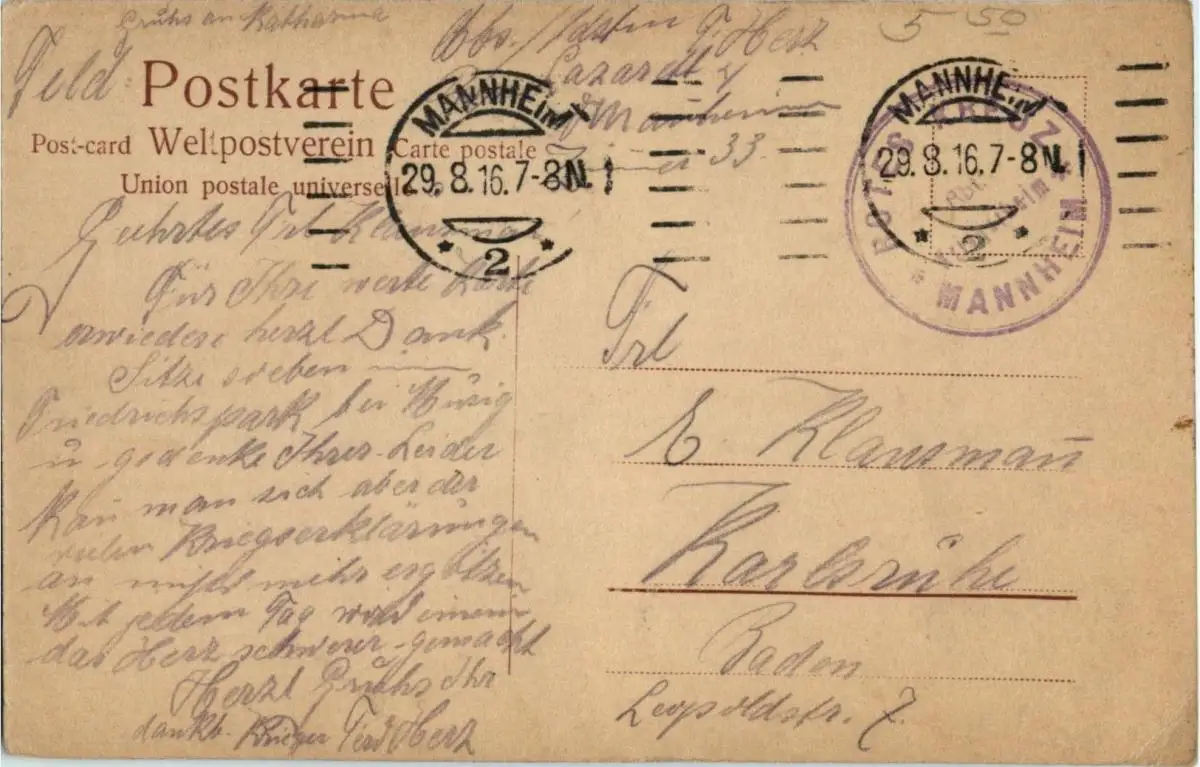 Grühs an Katharina
5 50
Abs. F. Herz
Lazarett
Mannheim
33.
Feld Postkarte
Post-card Weltpostverein Carte postale
Union postale universelle
MANNHEIM
29.8.16.7-8N.
* 2 *
MANNHEIM
29.8.16.7-8N.
* 2 *
ROTES KREUZ
* MANNHEIM *
Geehrtes Frl Klausman
Für Ihre werte Karte
erwiedere herzl Dank.
Sitze soeben im
Friedrichspark bei Musig
u gedenke Ihrer. Leider
Kan man sich aber der
vielen Kriegserklärungen
an nicht mehr ergötzen
Mit jedem Tag wird einem
das Herz schwerer gemacht
Herzl Grühs Ihr
dankb. Krieger Ferd Herz
Frl
E. Klausman̄
Karlsruhe
Baden
Leopoldstr. 7.